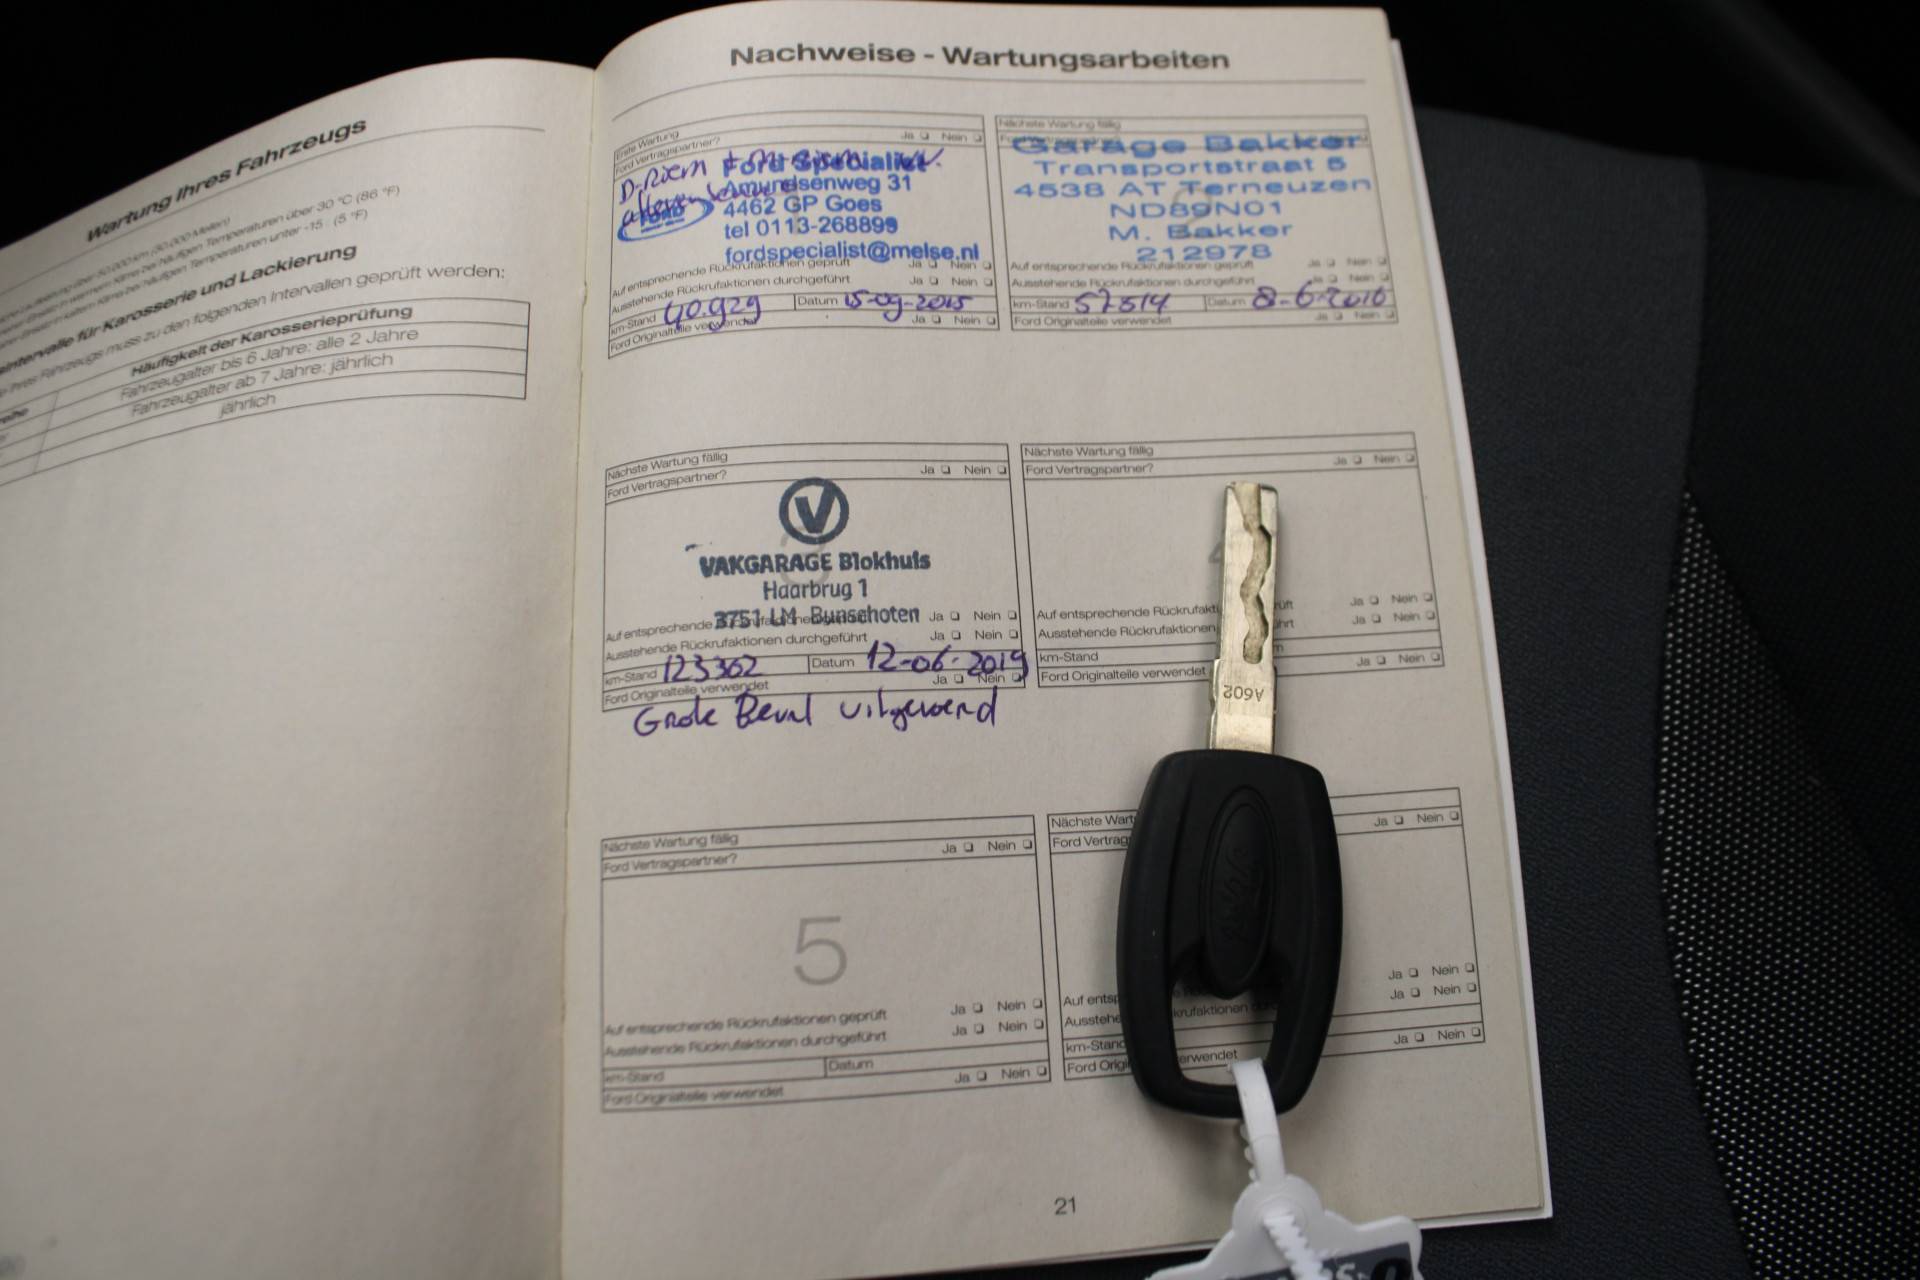 Wartung Ihres Fahrzeugs
über 50.000 km (30.000 Meilen)
bei häufigen Temperaturen über 30 °C (86 °F)
bei häufigen Temperaturen unter -15 (5 °F)
für Karosserie und Lackierung
Ihres Fahrzeugs muss zu den folgenden Intervallen geprüft werden:
Häufigkeit der Karosserieprüfung
Fahrzeugalter bis 6 Jahre: alle 2 Jahre
Fahrzeugalter ab 7 Jahre: jährlich
jährlich
Nachweise - Wartungsarbeiten
Erste Wartung
Ford Vertragspartner? Ja Nein
D-Riem
Ford Specialist
Amundsenweg 31
4462 GP Goes
tel 0113-268899
fordspecialist@melse.nl
Auf entsprechende Rückrufaktionen geprüft Ja Nein
Ausstehende Rückrufaktionen durchgeführt Ja Nein
km-Stand 40.929 Datum 15-09-2015
Ford Originalteile verwendet Ja Nein
Nächste Wartung fällig
Garage Bakker
Transportstraat 5
4538 AT Terneuzen
ND89N01
M. Bakker
212978
Auf entsprechende Rückrufaktionen geprüft Ja Nein
Ausstehende Rückrufaktionen durchgeführt Ja Nein
km-Stand 57814 Datum 8-6-2016
Ford Originalteile verwendet Ja Nein
Nächste Wartung fällig
Ford Vertragspartner? Ja Nein
V
3
VAKGARAGE Blokhuis
Haarbrug 1
3751 LM Bunschoten
Auf entsprechende Ja Nein
Ausstehende Rückrufaktionen durchgeführt Ja Nein
km-Stand 123362 Datum 12-06-2019
Ford Originalteile verwendet Ja Nein
Grote Beurt uitgevoerd
Nächste Wartung fällig
Ford Vertragspartner? Ja Nein
4
Auf entsprechende Rückrufakti rüft Ja Nein
Ausstehende Rückrufaktionen hrt Ja Nein
km-Stand
Ford Originalteile verwendet Ja Nein
A602
Nächste Wartung fällig
Ford Vertragspartner? Ja Nein
5
Auf entsprechende Rückrufaktionen geprüft Ja Nein
Ausstehende Rückrufaktionen durchgeführt Ja Nein
km-Stand Datum
Ford Originalteile verwendet Ja Nein
Nächste Wart
Ford Vertrag Ja Nein
Ford
Auf entsp Ja Nein
Ausstehe krufaktionen Ja Nein
km-Stand
Ford Origi erwendet Ja Nein
21